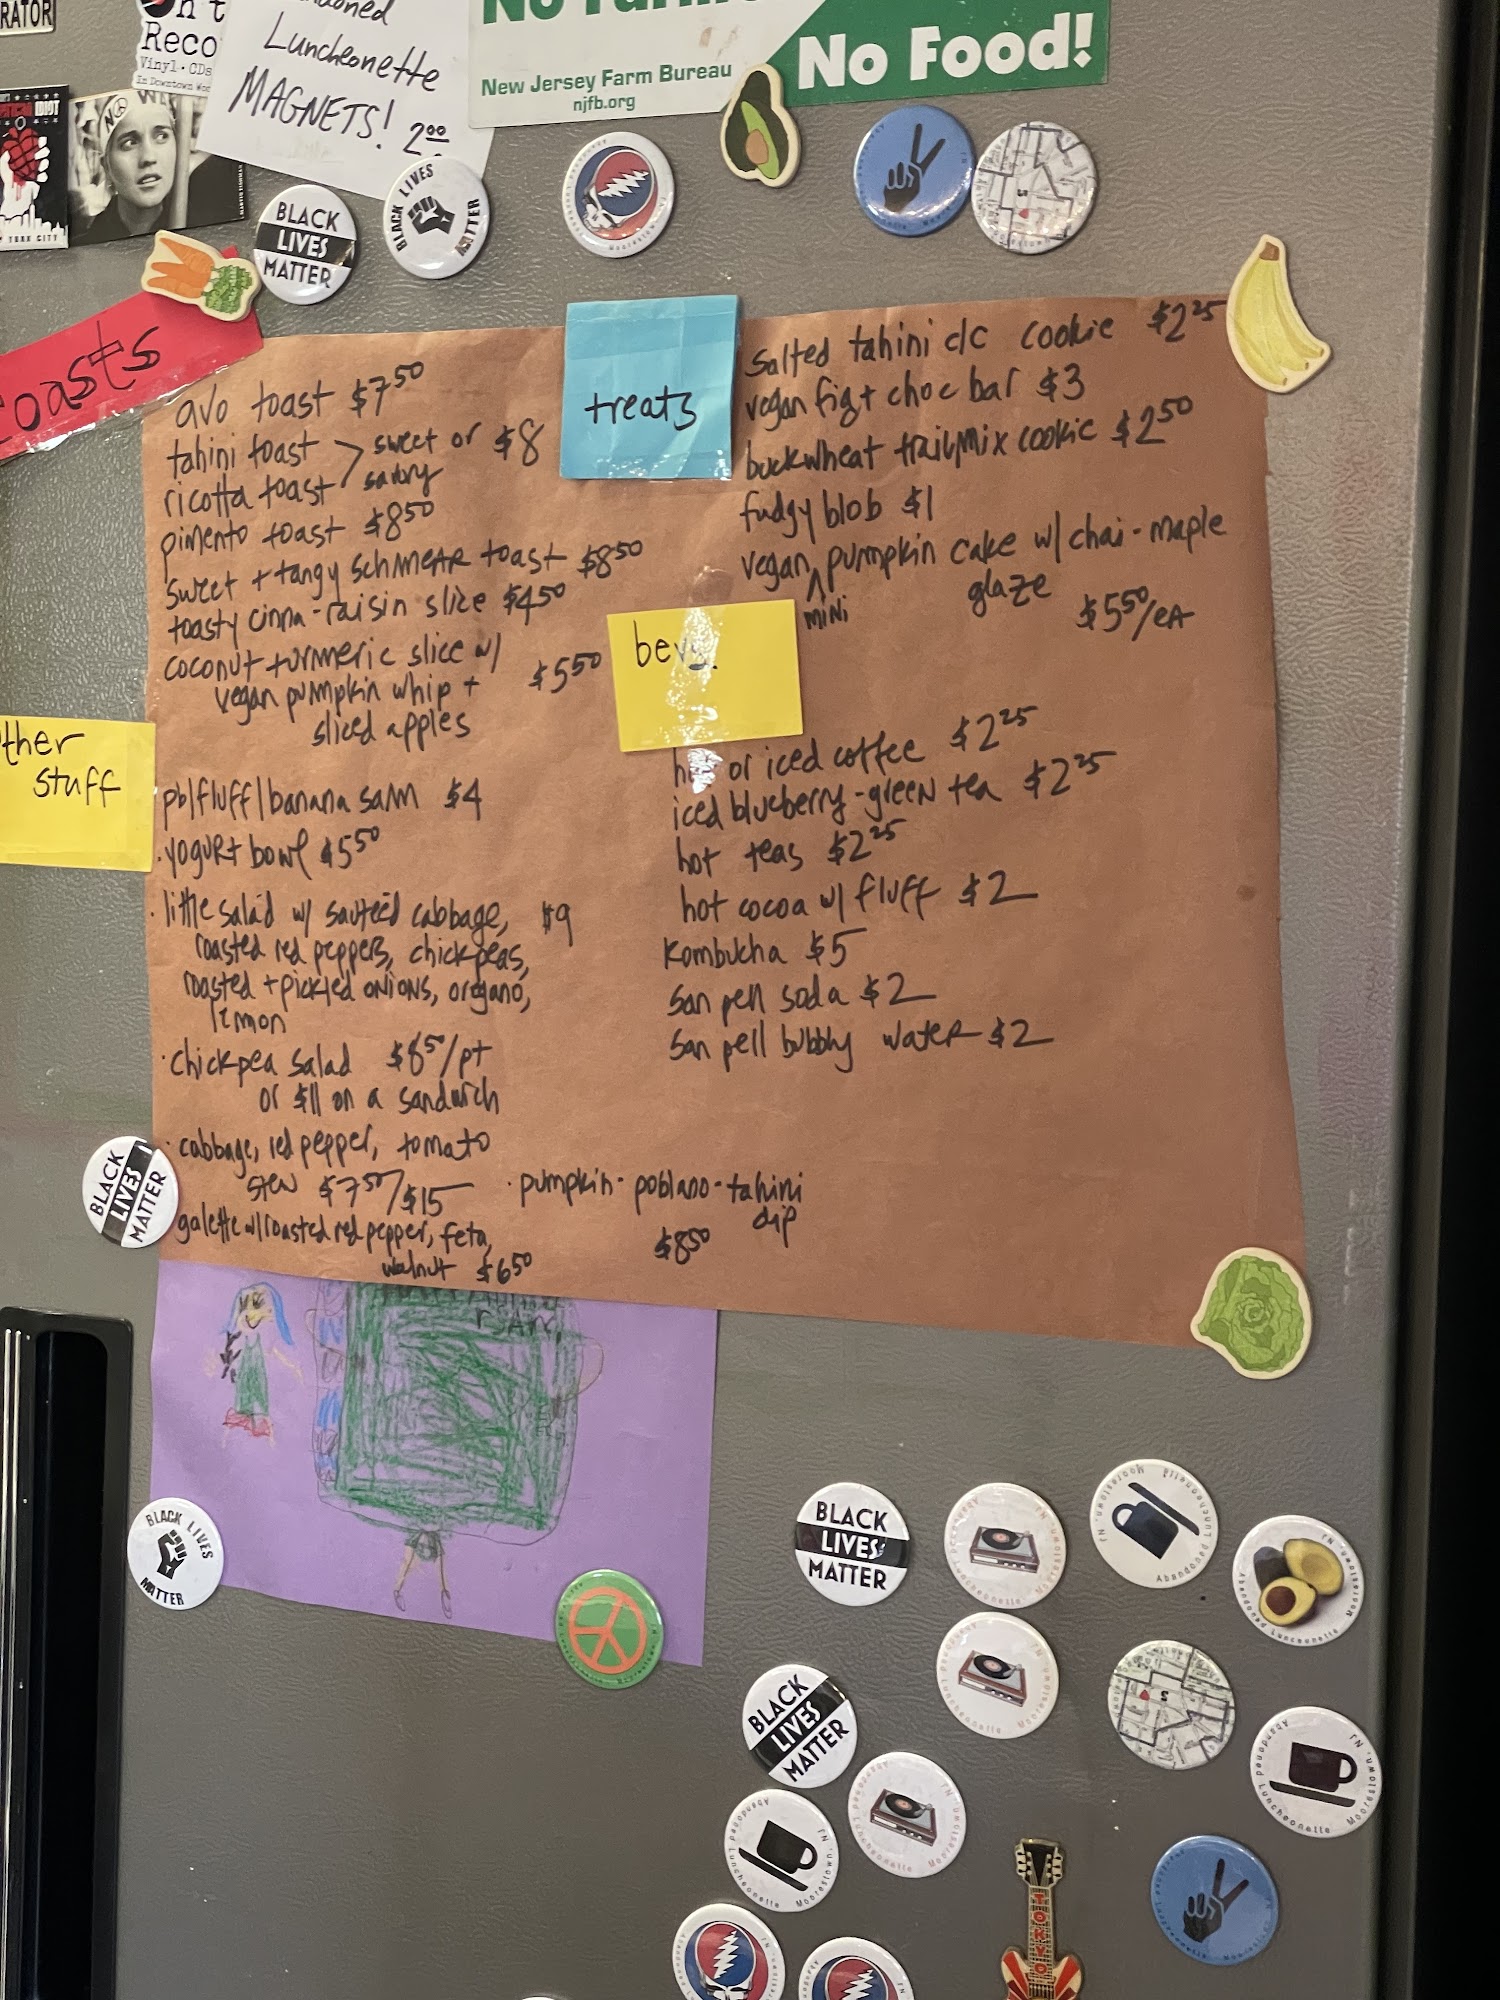 RATOR
Reco
Vinyl · CDs
In Downtown
Luncheonette
MAGNETS! 2.00
No
No Food!
New Jersey Farm Bureau
njfb.org
IDIOT
YORK CITY
BLACK
LIVES
MATTER
BLACK LIVES
MATTER
oasts
avo toast $7.50
tahini toast
ricotta toast
sweet or
savory
$8
pimento toast $8.50
sweet + tangy schmear toast $8.50
toasty cinna-raisin slice $4.50
coconut turmeric slice w/
vegan pumpkin whip +
sliced apples
$5.50
ther
stuff
pb/fluff/banana sam $4
· yogurt bowl $5.50
· little salad w/ sauteed cabbage, $9
roasted red peppers, chickpeas,
roasted + pickled onions, oregano,
lemon
· chickpea salad $8.50/pt
or $11 on a sandwich
· cabbage, red pepper, tomato
stew $7.50/$15
galette w/roasted red pepper, feta,
walnut $6.50
· pumpkin-poblano-tahini
dip
$8.50
treats
salted tahini c/c cookie $2.25
vegan fig + choc bar $3
buckwheat trailmix cookie $2.50
fudgy blob $1
vegan mini pumpkin cake w/ chai-maple
glaze
$5.50/ea
bevs.
or iced coffee $2.25
iced blueberry-green tea $2.25
hot teas $2.25
hot cocoa w/ fluff $2
kombucha $5
san pell soda $2
san pell bubbly water $2
BLACK
LIVES
MATTER
BLACK LIVES
MATTER
BLACK
LIVES
MATTER
Abandoned Luncheonette Moorestown, NJ
Abandoned Luncheonette Moorestown, NJ
Abandoned Luncheonette Moorestown, NJ
Abandoned Luncheonette Moorestown, NJ
BLACK
LIVES
MATTER
Abandoned Luncheonette Moorestown, NJ
Abandoned Luncheonette Moorestown, NJ
Abandoned Luncheonette Moorestown, NJ
TOKYO